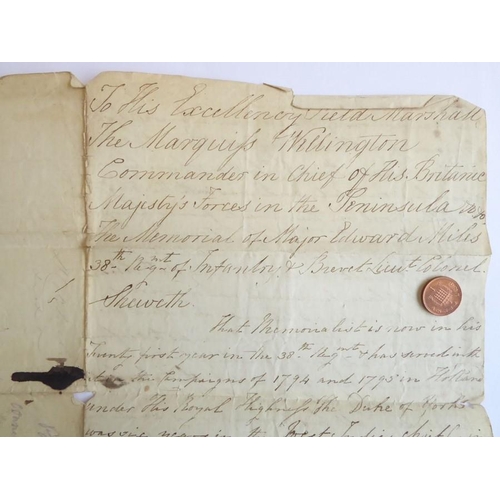 To His Excellency Field Marshall
The Marquiss Wellington
Commander in Chief of His Britanic
Majesty's Forces in the Peninsula
The Memorial of Major Edward Miles
38th Regnt of Infantry & Brevet Lieut Colonel
Sheweth
That Memorialist is now in his
first year in the 38th Regnt & has served
the Campaigns of 1794 and 1795 in Hollan
under His Royal Highness the Duke of York
was six years in the West Indies